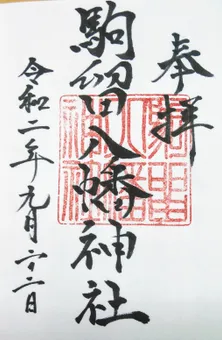 奉拝
駒留八幡神社
令和二年元月十二日